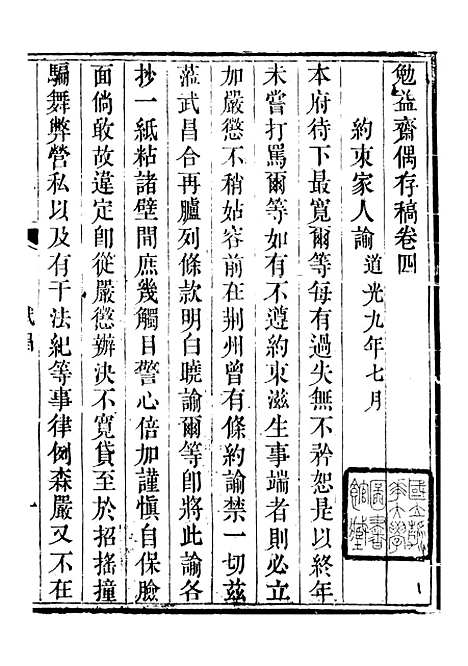 勉益齋偶存稿卷四
約束家人諭 道光九年七月
本府待下最寬爾等每有過失無不矜恕是以終年
未嘗打罵爾等如有不遵約束滋生事端者則必立
加嚴懲不稍姑容前在荆州曾有條約諭禁一切茲
蒞武昌合再臚列條款明白曉諭爾等卽將此諭各
抄一紙粘諸壁間庶幾觸目警心倍加謹愼自保臉
面倘敢故違定卽從嚴懲辦決不寬貸至於招搖撞
騙舞弊營私以及有干法紀等事律例森嚴又不在
武昌
一